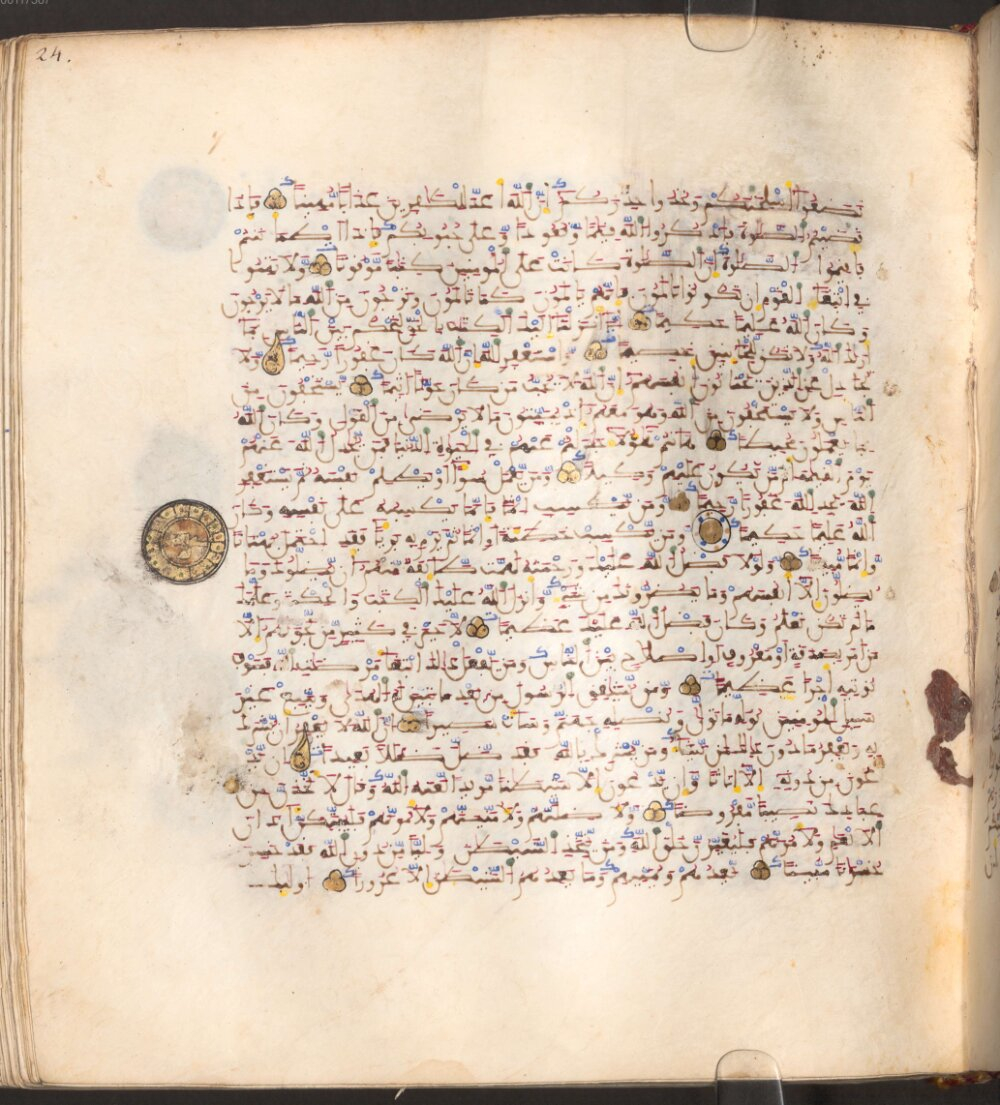 24.
تضعوا اسلحتكم وخذوا حذركم ان الله اعد للكفرين عذابا مهينا فاذا
قضيتم الصلوة فاذكروا الله قيما وقعودا وعلى جنوبكم فاذا اطماننتم
فاقيموا الصلوة ان الصلوة كانت على المومنين كتبا موقوتا ولا تهنوا
في ابتغا القوم ان تكونوا تالمون فانهم يالمون كما تالمون وترجون من الله ما لا يرجون
وكان الله عليما حكيما انا انزلنا اليك الكتب بالحق لتحكم بين الناس بما
اريك الله ولا تكن للخاينين خصيما واستغفر الله ان الله كان غفورا رحيما ولا
تجدل عن الذين يختانون انفسهم ان الله لا يحب من كان خوانا اثيما يستخفون من
الناس ولا يستخفون من الله وهو معهم اذ يبيتون ما لا يرضى من القول وكان الله
بما يعملون محيطا هانتم هولا جدلتم عنهم في الحيوة الدنيا فمن يجدل الله عنهم
يوم القيمة ام من يكون عليهم وكيلا ومن يعمل سوا او يظلم نفسه ثم يستغفر
الله يجد الله غفورا رحيما ومن يكسب اثما فانما يكسبه على نفسه وكان
الله عليما حكيما ومن يكسب خطية او اثما ثم يرم به بريا فقد احتمل بهتنا
واثما مبينا ولولا فضل الله عليك ورحمته لهمت طايفة منهم ان يضلوك وما
يضلون الا انفسهم وما يضرونك من شي وانزل الله عليك الكتب والحكمة وعلمك
ما لم تكن تعلم وكان فضل الله عليك عظيما لا خير في كثير من نجويهم الا
من امر بصدقة او معروف او اصلاح بين الناس ومن يفعل ذلك ابتغا مرضات الله فسوف
نوتيه اجرا عظيما ومن يشاقق الرسول من بعد ما تبين له الهدى ويتبع غير
سبيل المومنين نوله ما تولى ونصله جهنم وسات مصيرا ان الله لا يغفر ان يشرك
به ويغفر ما دون ذلك لمن يشا ومن يشرك بالله فقد ضل ضللا بعيدا ان يد
عون من دونه الا اناثا وان يدعون الا شيطنا مريدا لعنه الله وقال لاتخذن من
عبادك نصيبا مفروضا ولاضلنهم ولامنينهم ولامرنهم فليبتكن اذان
الانعم ولامرنهم فليغيرن خلق الله ومن يتخذ الشيطن وليا من دون الله فقد خسر
خسرانا مبينا يعدهم ويمنيهم وما يعدهم الشيطن الا غرورا اوليك